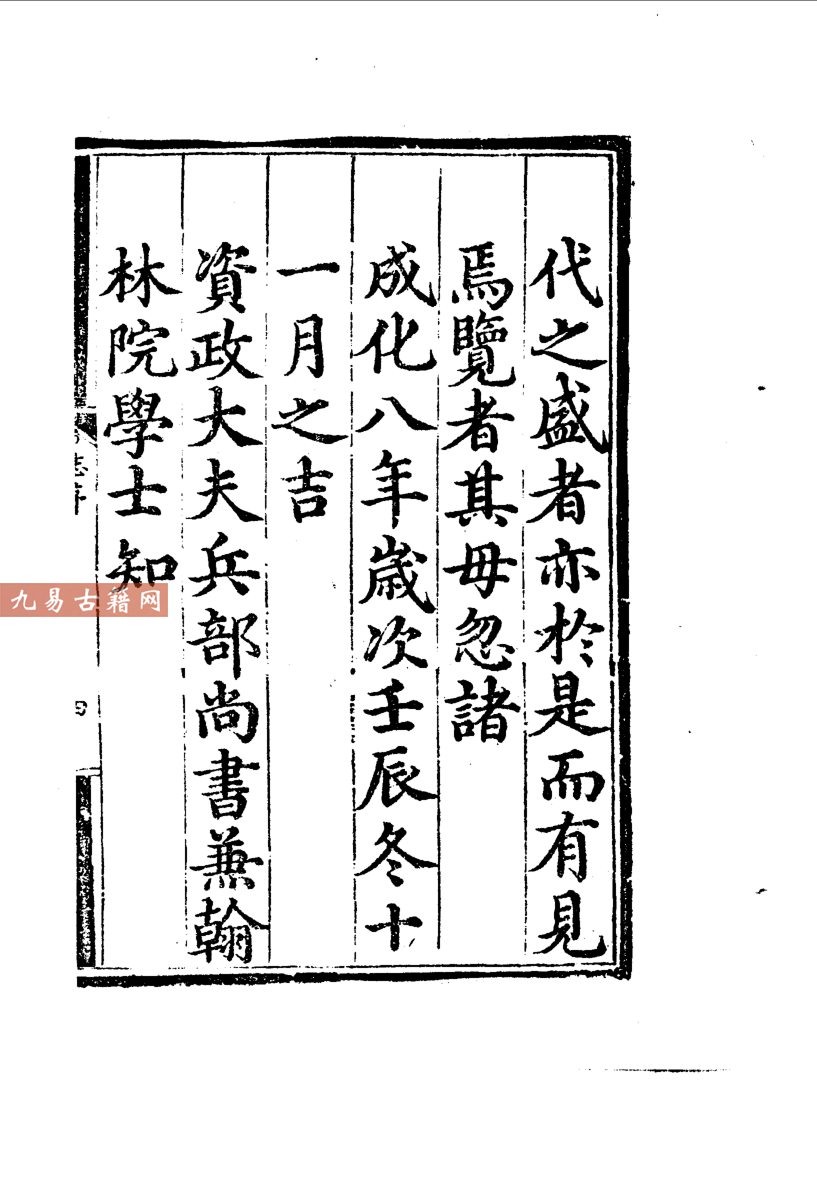 代之盛者亦於是而有見
焉覽者其毋忽諸
成化八年歲次壬辰冬十
一月之吉
資政大夫兵部尚書兼翰
林院學士知
志序
四
九易古籍网